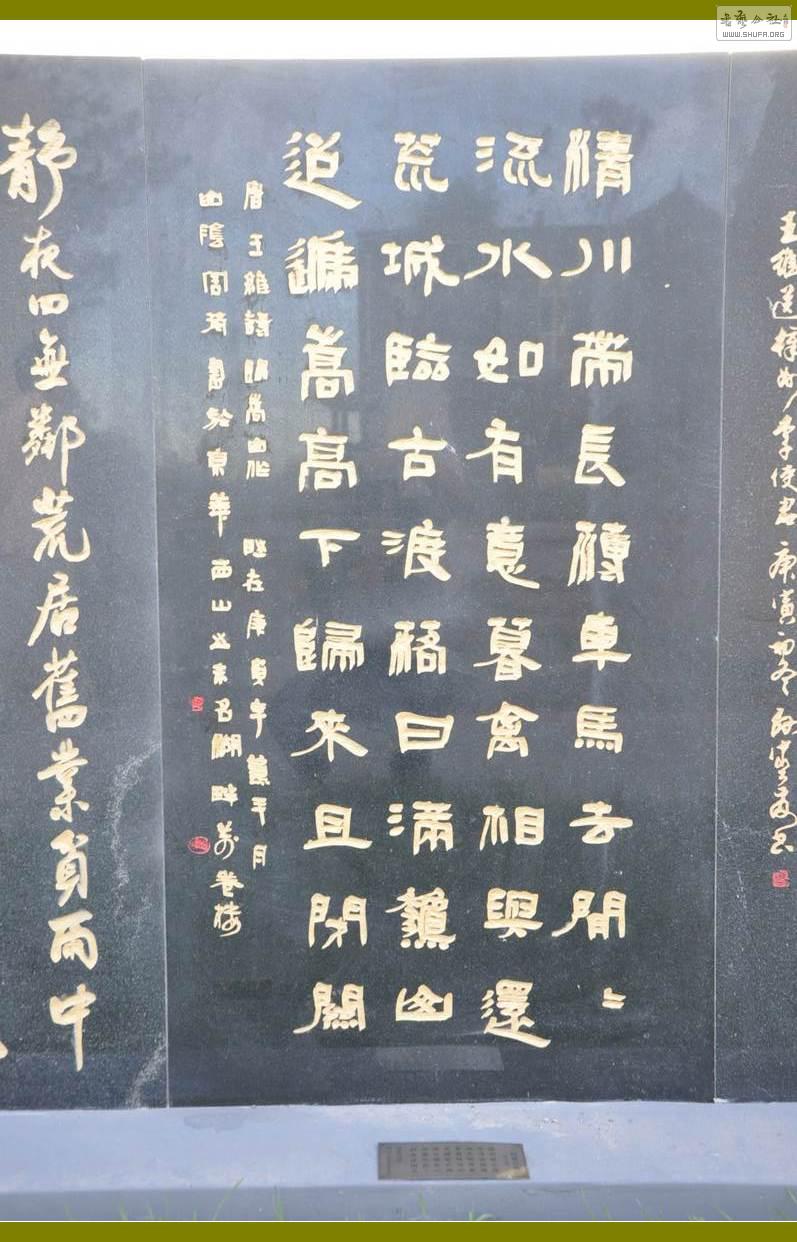 王維送梓州李使君 庚寅初冬
清川帶長薄車馬去閒〻
流水如有意暮禽相與還
荒城臨古渡落日滿龝山
迢遞嵩高下歸來且閉關
唐王維詩歸嵩山作 時在庚寅年 月
山陰周 書於東華西山 名湖畔萬卷樓
靜夜四無鄰荒居舊業貧雨中
WWW.SHUFA.ORG